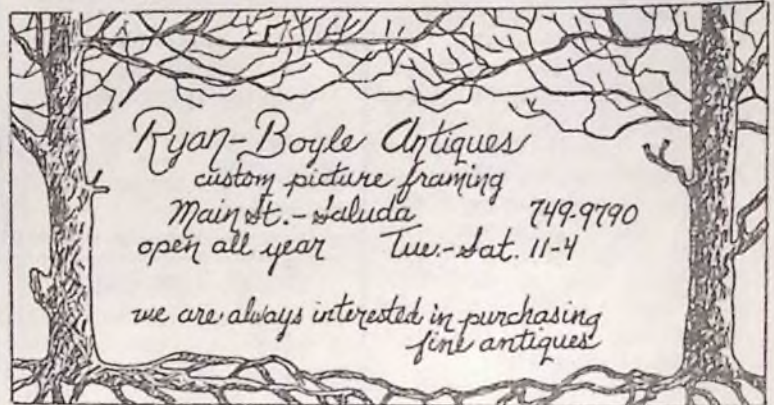 Ryan-Boyle Antiques
custom picture framing
Main St.-Saluda 749-9790
open all year Tue.-Sat. 11-4
we are always interested in purchasing
fine antiques